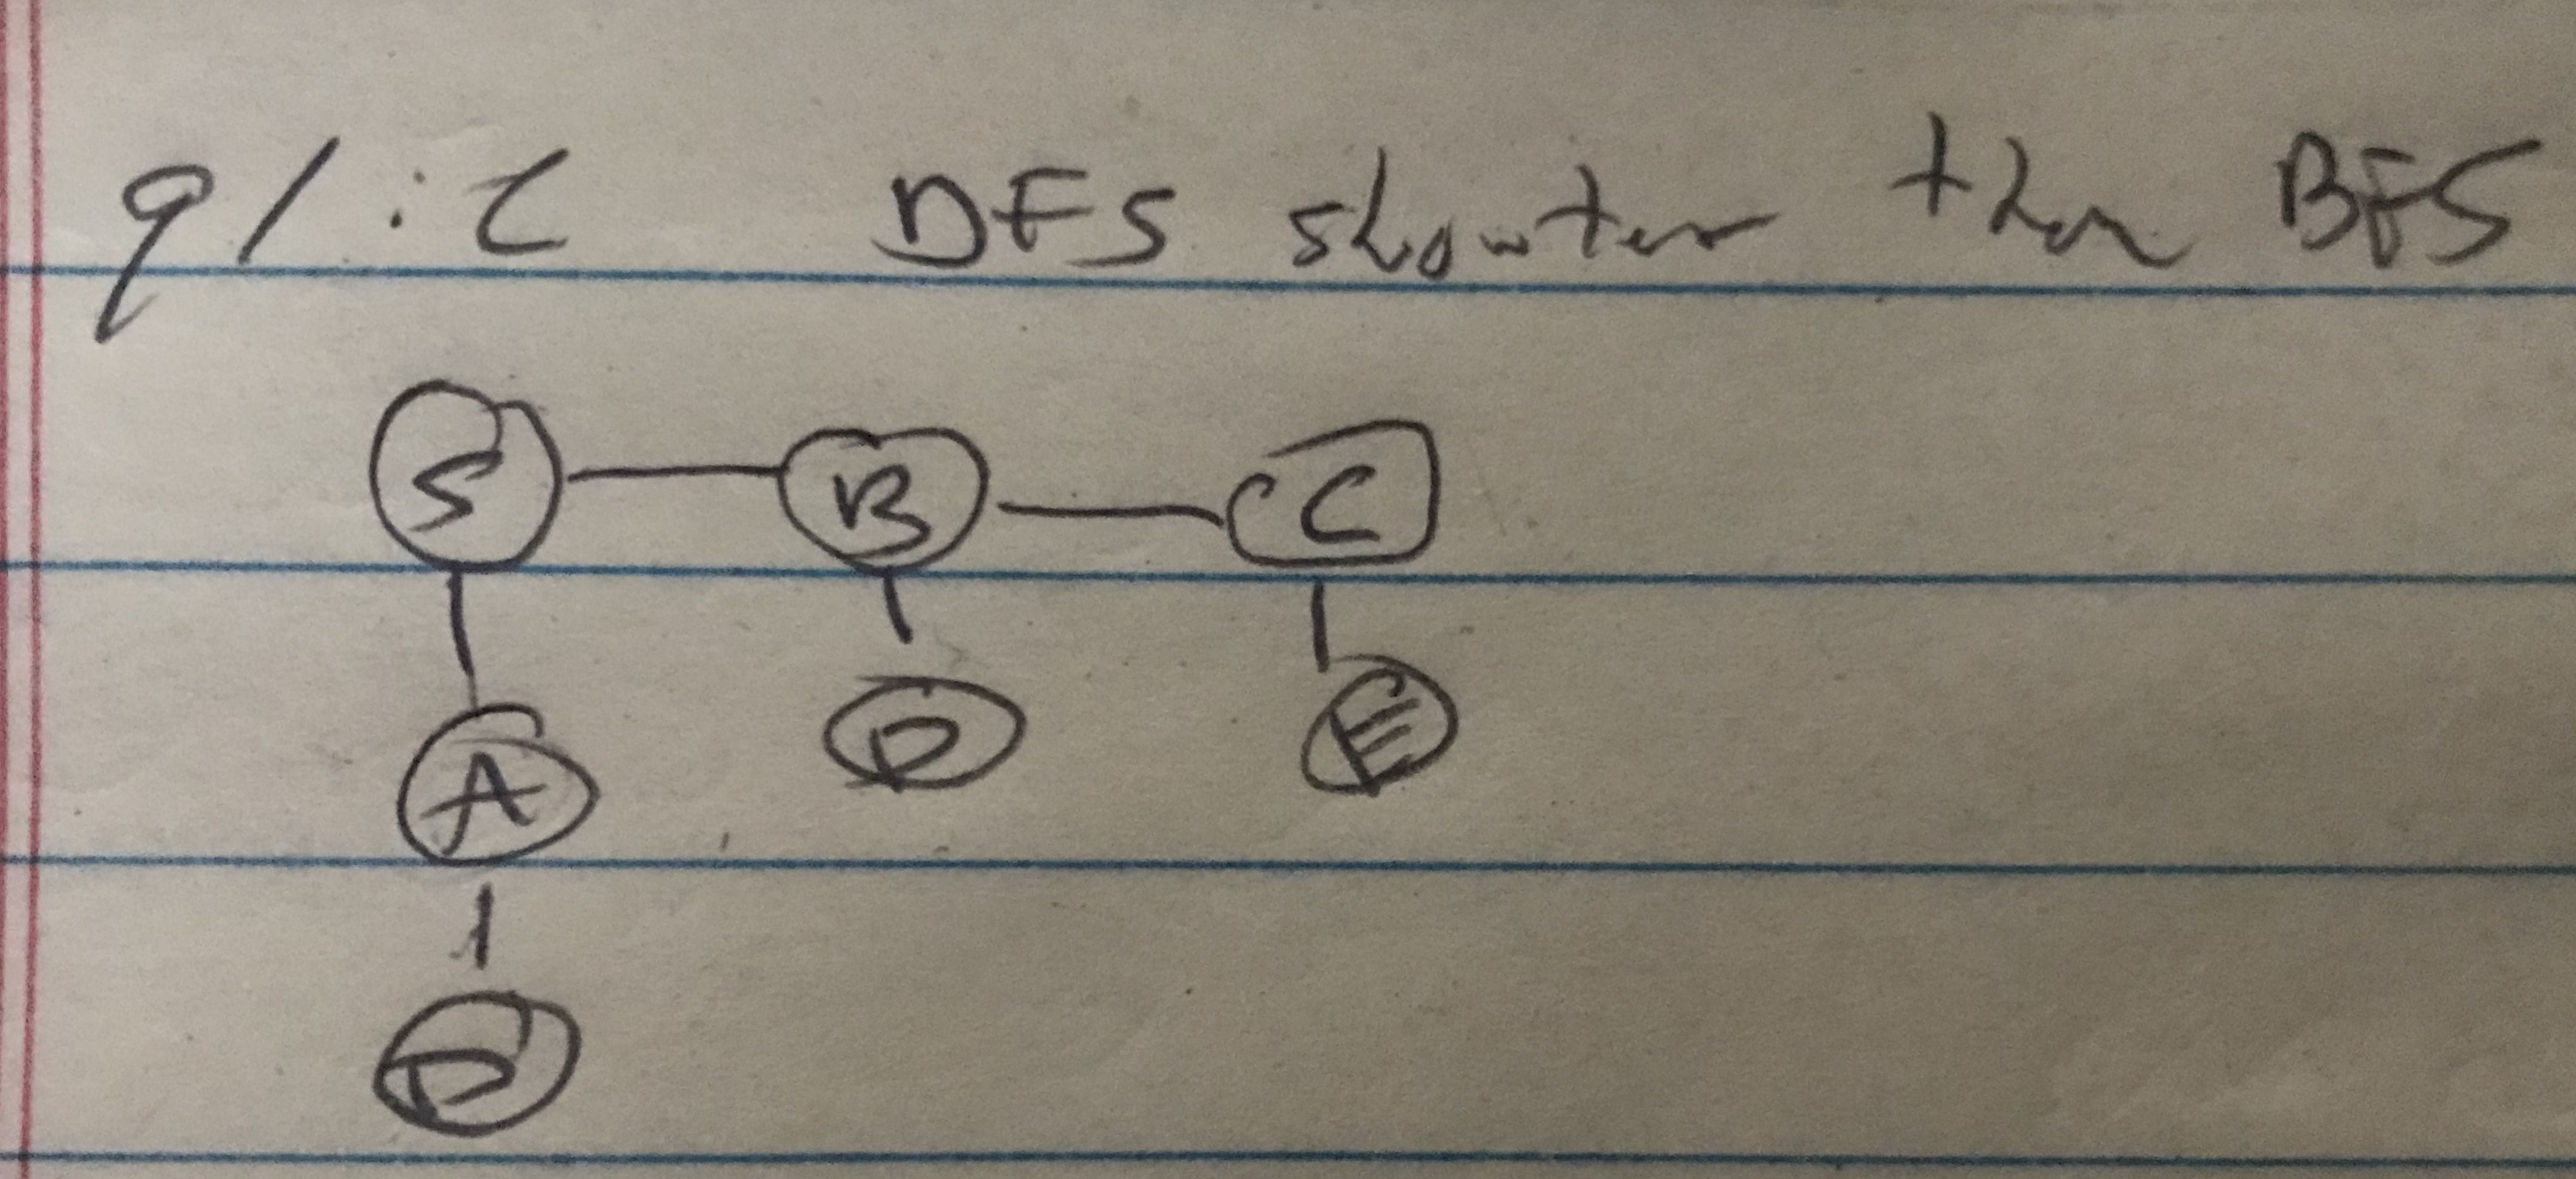 q1:c DFS showter then BFS
S B C
A D E
D